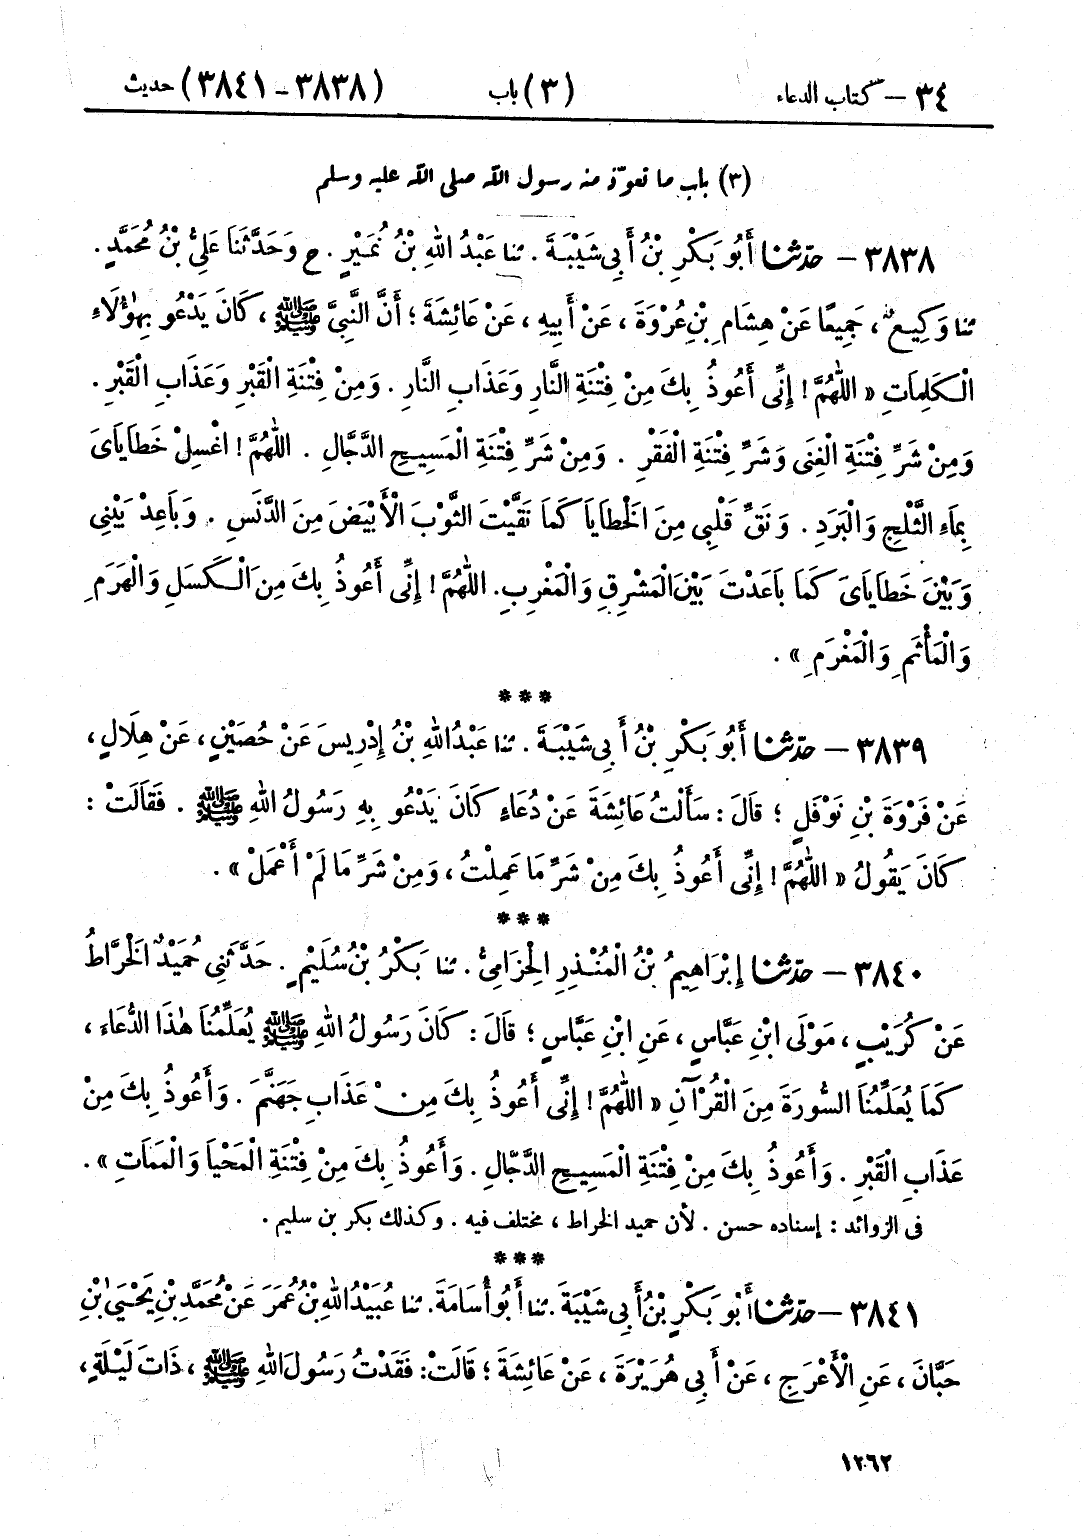 ٣٤ – كتاب الدعاء (٣) باب (٣٨٣٨ – ٣٨٤١) حديث
(٣) باب ما تعوّذ منه رسول الله صلى الله عليه وسلم
٣٨٣٨ – حدّثنا أَبُو بَكْرِ بْنُ أَبِي شَيْبَةَ . ثنا عَبْدُ اللهِ بْنُ نُمَيْرٍ . ح وَحَدَّثَنَا عَلِيُّ بْنُ مُحَمَّدٍ .
ثنا وَكِيعٌ ، جَمِيعًا عَنْ هِشَامِ بْنِ عُرْوَةَ ، عَنْ أَبِيهِ ، عَنْ عَائِشَةَ ؛ أَنَّ النَّبِيَّ ﷺ ، كَانَ يَدْعُو بِهٰؤُلَاءِ
الْكَلِمَاتِ « اللّٰهُمَّ ! إِنِّى أَعُوذُ بِكَ مِنْ فِتْنَةِ النَّارِ وَعَذَابِ النَّارِ . وَمِنْ فِتْنَةِ الْقَبْرِ وَعَذَابِ الْقَبْرِ .
وَمِنْ شَرِّ فِتْنَةِ الْغِنَى وَشَرِّ فِتْنَةِ الْفَقْرِ . وَمِنْ شَرِّ فِتْنَةِ الْمَسِيحِ الدَّجَّالِ . اللّٰهُمَّ ! اغْسِلْ خَطَايَاىَ
بِمَاءِ الثَّلْجِ وَالْبَرَدِ . وَنَقِّ قَلْبِى مِنَ الْخَطَايَا كَمَا نَقَّيْتَ الثَّوْبَ الْأَبْيَضَ مِنَ الدَّنَسِ . وَبَاعِدْ بَيْنِى
وَبَيْنَ خَطَايَاىَ كَمَا بَاعَدْتَ بَيْنَ الْمَشْرِقِ وَالْمَغْرِبِ. اللّٰهُمَّ ! إِنِّى أَعُوذُ بِكَ مِنَ الْكَسَلِ وَالْهَرَمِ
وَالْمَأْثَمِ وَالْمَغْرَمِ » .
***
٣٨٣٩ – حدّثنا أَبُو بَكْرِ بْنُ أَبِي شَيْبَةَ . ثنا عَبْدُ اللهِ بْنُ إِدْرِيسَ عَنْ حُصَيْنٍ ، عَنْ هِلَالٍ ،
عَنْ فَرْوَةَ بْنِ نَوْفَلٍ ؛ قَالَ : سَأَلْتُ عَائِشَةَ عَنْ دُعَاءٍ كَانَ يَدْعُو بِهِ رَسُولُ اللهِ ﷺ . فَقَالَتْ :
كَانَ يَقُولُ « اللّٰهُمَّ ! إِنِّى أَعُوذُ بِكَ مِنْ شَرِّ مَا عَمِلْتُ ، وَمِنْ شَرِّ مَا لَمْ أَعْمَلْ » .
***
٣٨٤٠ – حدّثنا إِبْرَاهِيمُ بْنُ الْمُنْذِرِ الْحِزَامِىُّ . ثنا بَكْرُ بْنُ سُلَيْمٍ . حَدَّثَنِى حُمَيْدٌ الْخَرَّاطُ
عَنْ كُرَيْبٍ ، مَوْلَى ابْنِ عَبَّاسٍ ، عَنِ ابْنِ عَبَّاسٍ ؛ قَالَ : كَانَ رَسُولُ اللهِ ﷺ يُعَلِّمُنَا هٰذَا الدُّعَاءَ ،
كَمَا يُعَلِّمُنَا السُّورَةَ مِنَ الْقُرْآنِ « اللّٰهُمَّ ! إِنِّى أَعُوذُ بِكَ مِنْ عَذَابِ جَهَنَّمَ . وَأَعُوذُ بِكَ مِنْ
عَذَابِ الْقَبْرِ . وَأَعُوذُ بِكَ مِنْ فِتْنَةِ الْمَسِيحِ الدَّجَّالِ . وَأَعُوذُ بِكَ مِنْ فِتْنَةِ الْمَحْيَا وَالْمَمَاتِ » .
فى الزوائد : إسناده حسن . لأن حميد الخراط ، مختلف فيه . وكذلك بكر بن سليم .
***
٣٨٤١ – حدّثنا أَبُو بَكْرِ بْنُ أَبِي شَيْبَةَ . ثنا أَبُو أُسَامَةَ . ثنا عُبَيْدُ اللهِ بْنُ عُمَرَ عَنْ مُحَمَّدِ بْنِ يَحْيَىٰ بْنِ
حَبَّانَ ، عَنِ الْأَعْرَجِ ، عَنْ أَبِى هُرَيْرَةَ ، عَنْ عَائِشَةَ ؛ قَالَتْ: فَقَدْتُ رَسُولَ اللهِ ﷺ ، ذَاتَ لَيْلَةٍ ،
١٢٦٢